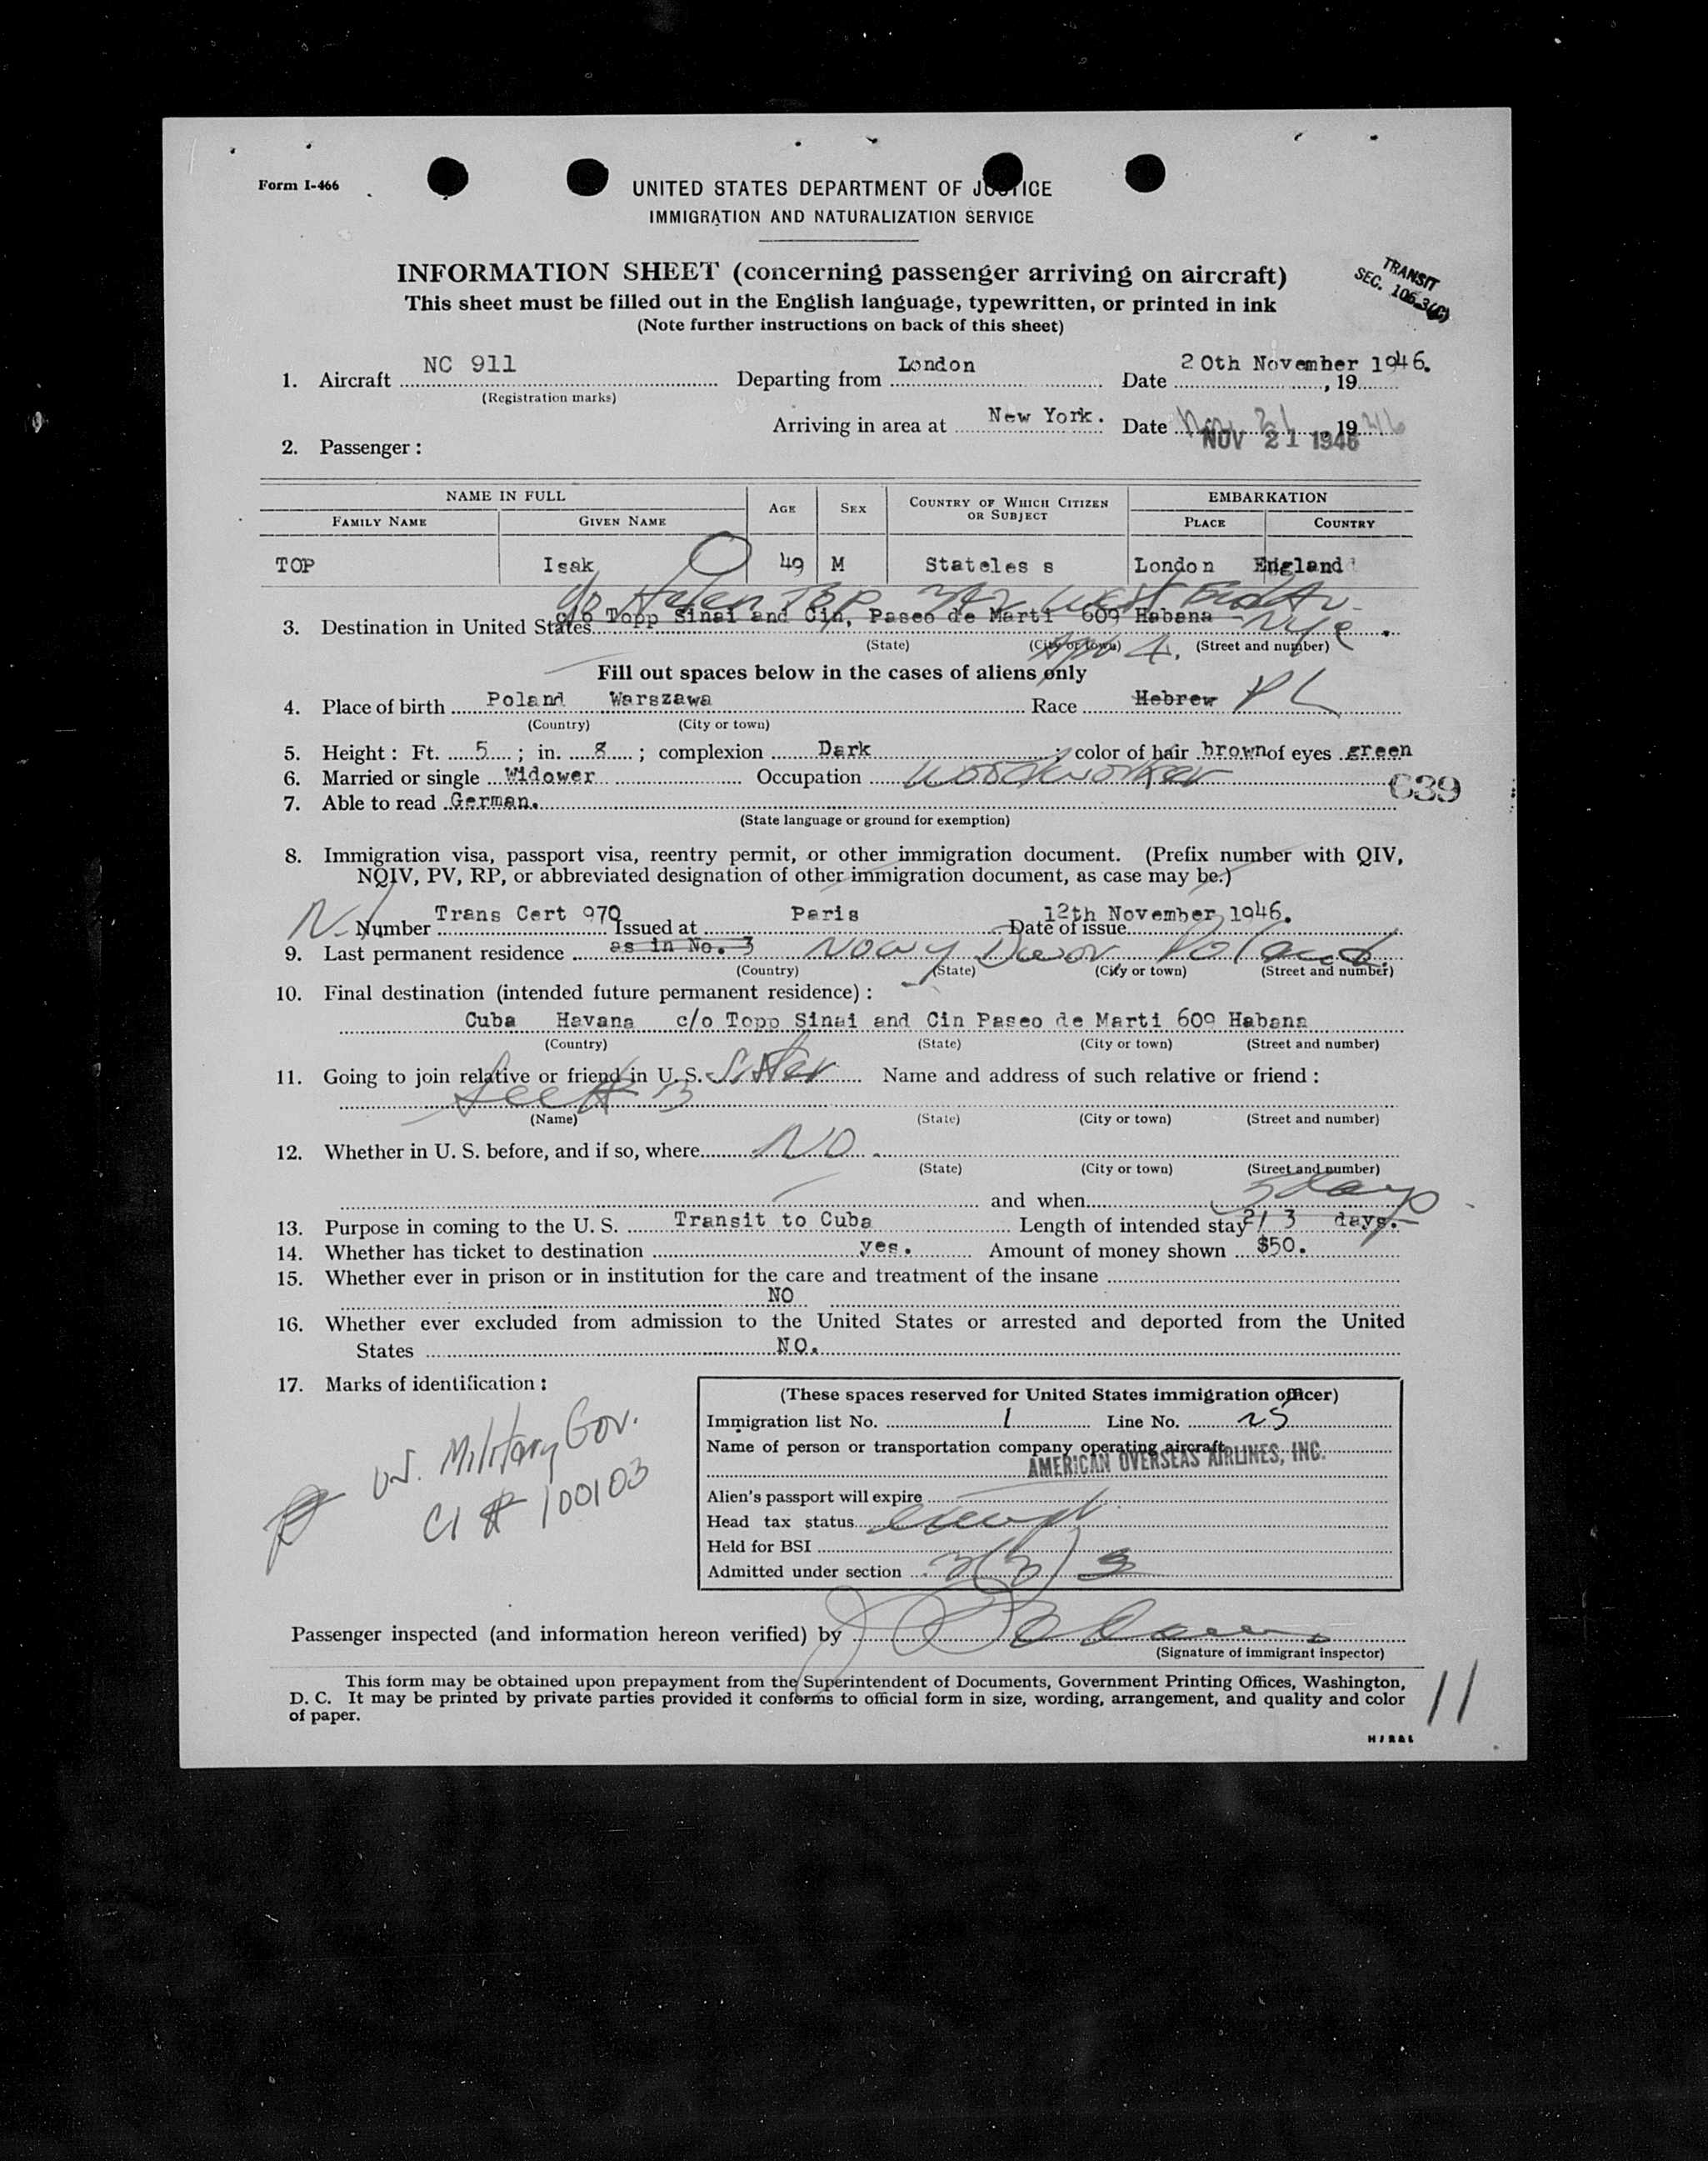 Form I-466
UNITED STATES DEPARTMENT OF JUSTICE
IMMIGRATION AND NATURALIZATION SERVICE
INFORMATION SHEET (concerning passenger arriving on aircraft)
TRANSIT
SEC. 106.3(C)
This sheet must be filled out in the English language, typewritten, or printed in ink
(Note further instructions on back of this sheet)
1. Aircraft NC 911 Departing from London Date 20th November 1946. , 19
(Registration marks)
Arriving in area at New York. Date Nov 21 , 19 46
NOV 21 1946
2. Passenger :
NAME IN FULL AGE SEX COUNTRY OF WHICH CITIZEN OR SUBJECT EMBARKATION
FAMILY NAME GIVEN NAME PLACE COUNTRY
TOP Isak 49 M Stateles s London England
c/o Helen Top 342 West
3. Destination in United States c/o Topp Sinai and Cin, Paseo de Marti 609 Habana NYC
(State) (City or town) (Street and number)
Apt 4.
Fill out spaces below in the cases of aliens only
4. Place of birth Poland Warszawa Race Hebrew PL
(Country) (City or town)
5. Height : Ft. 5 ; in. 8 ; complexion Dark ; color of hair brown of eyes green
6. Married or single Widower Occupation woodworker
639
7. Able to read German.
(State language or ground for exemption)
8. Immigration visa, passport visa, reentry permit, or other immigration document. (Prefix number with QIV,
NQIV, PV, RP, or abbreviated designation of other immigration document, as case may be.)
Number Trans Cert 970 Issued at Paris Date of issue 12th November 1946.
9. Last permanent residence as in No. 3 Nowy Dwor Poland.
(Country) (State) (City or town) (Street and number)
10. Final destination (intended future permanent residence) :
Cuba Havana c/o Topp Sinai and Cin Paseo de Marti 609 Habana
(Country) (State) (City or town) (Street and number)
11. Going to join relative or friend in U. S. Sister Name and address of such relative or friend :
See # 3
(Name) (State) (City or town) (Street and number)
12. Whether in U. S. before, and if so, where NO
(State) (City or town) (Street and number)
and when
3 days
13. Purpose in coming to the U. S. Transit to Cuba Length of intended stay 2/ 3 days.
14. Whether has ticket to destination yes. Amount of money shown $50.
15. Whether ever in prison or in institution for the care and treatment of the insane
NO
16. Whether ever excluded from admission to the United States or arrested and deported from the United
States NO.
17. Marks of identification :
Military Gov.
CI # 100103
(These spaces reserved for United States immigration officer)
Immigration list No. 1 Line No. 25
Name of person or transportation company operating aircraft
AMERICAN OVERSEAS AIRLINES, INC.
Alien's passport will expire
Head tax status exempt
Held for BSI
Admitted under section 3(3)
Passenger inspected (and information hereon verified) by
(Signature of immigrant inspector)
This form may be obtained upon prepayment from the Superintendent of Documents, Government Printing Offices, Washington,
D. C. It may be printed by private parties provided it conforms to official form in size, wording, arrangement, and quality and color
of paper.
11